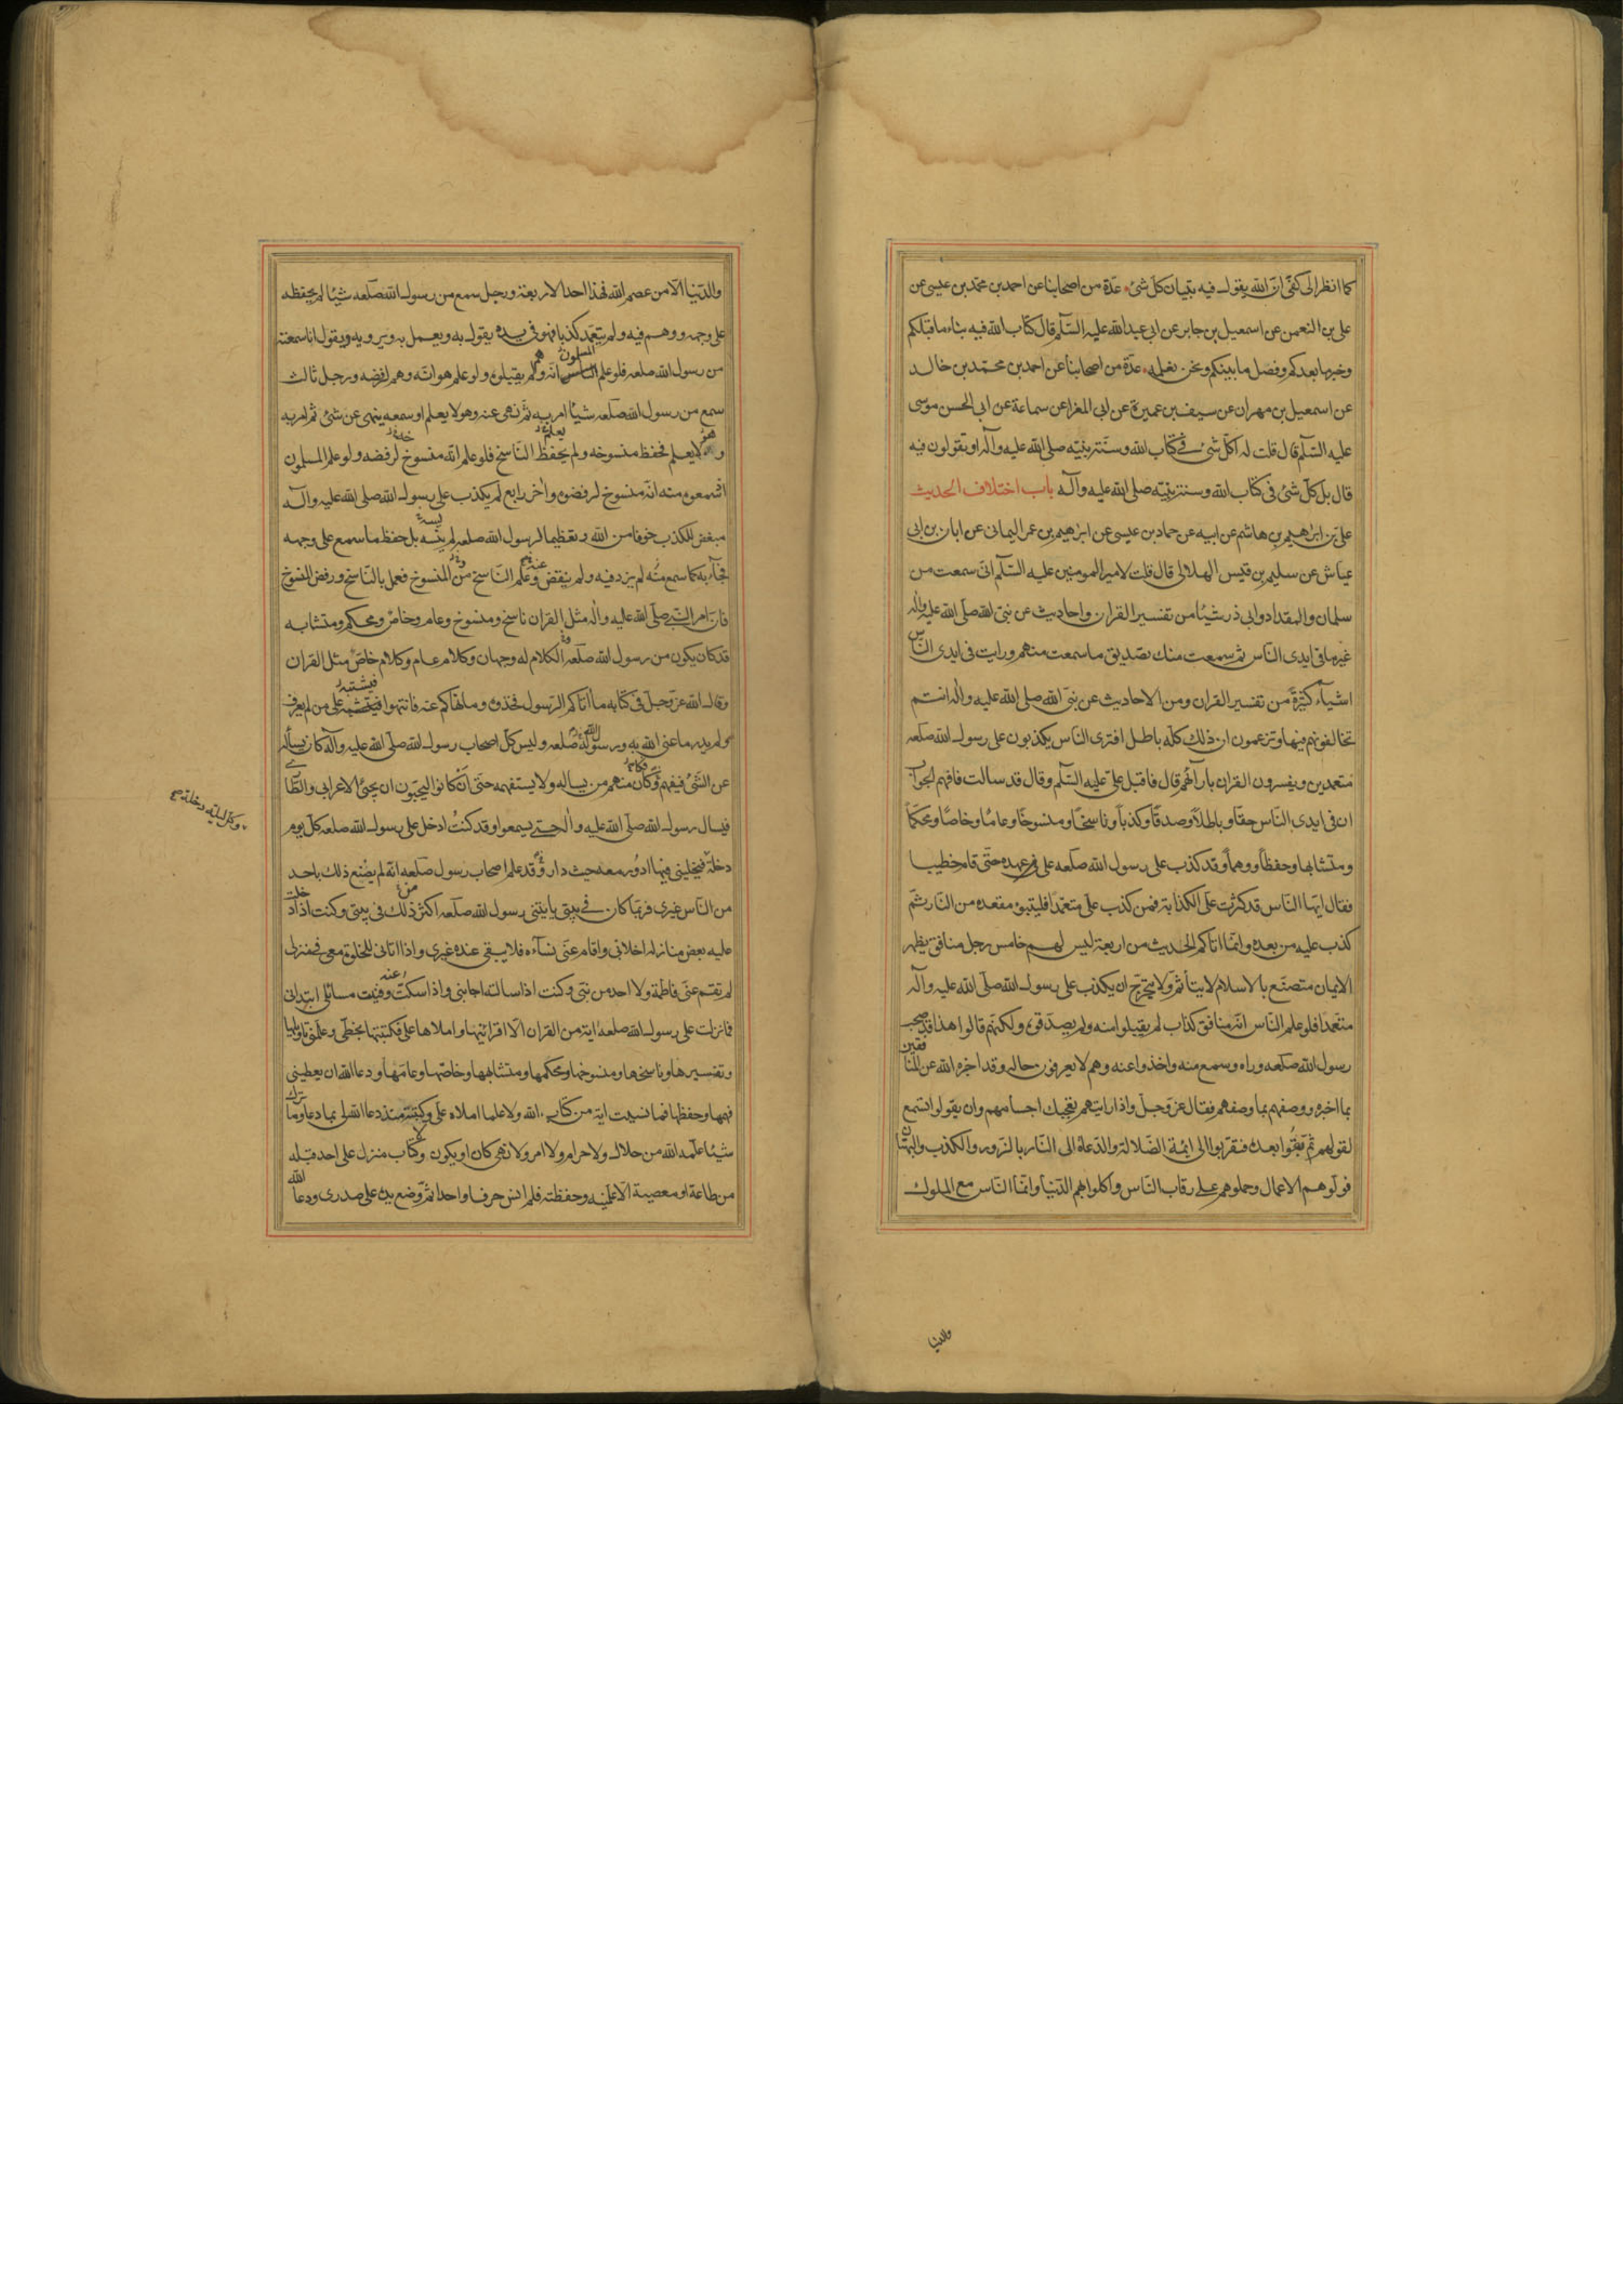 كما انظر الى كفّى انّ الله يقول فيه تبيان كلّ شئ عدّة من اصحابنا عن احمد بن محمّد بن عيسى عن
على بن النعمن عن اسمعيل بن جابر عن ابى عبد الله عليه السّلم قال كتاب الله فيه نباء ما قبلكم
وخبر ما بعدكم وفصل ما بينكم ونحن نعلمه عدّة من اصحابنا عن احمد بن محمّد بن خالد
عن اسمعيل بن مهران عن سيف بن عميرة عن ابى المغرا عن سماعة عن ابى الحسن موسى
عليه السّلم قال قلت له اكلّ شئ فى كتاب الله وسنّة نبيّه صلى الله عليه وآله او تقولون فيه
قال بل كلّ شئ فى كتاب الله وسنة نبيّه صلى الله عليه وآله باب اختلاف الحديث
علىّ بن ابرٰهيم بن هاشم عن ابيه عن حماد بن عيسى عن ابرٰهيم بن عمر اليمانى عن ابان بن ابى
عياش عن سليم بن قيس الهلالى قال قلت لامير المومنين عليه السّلم انّى سمعت من
سلمان والمقداد وابى ذر شيئا من تفسير القران واحاديث عن نبىّ الله صلّى الله عليه واله
غير ما فى ايدى الناس ثم سمعت منك تصديق ما سمعت منهم ورايت فى ايدى النّاس
اشيآء كثيرة من تفسير القران ومن الاحاديث عن نبىّ الله صلى الله عليه واله انتم
تخالفونهم فيها وتزعمون ان ذلك كلّه باطل افترى النّاس يكذبون على رسول الله صلّعه
متعمدين ويفسرون القران بارآئهم قال فاقبل علىّ عليه السّلم وقال قد سالت فافهم الجواب
ان فى ايدى النّاس حقّا وباطلاً وصدقًا وكذباً وناسخًا ومنسوخًا وعامًا وخاصًا ومحكمًا
ومتشابها وحفظًا ووهماً وقد كذب على رسول الله صلّعه على عهده حتّى قام خطيبا
فقال ايّها النّاس قد كثرت علىّ الكذابة فمن كذب علىّ متعمّدا فليتبوء مقعده من النّار ثمّ
كذب عليه من بعده وانّما اتاكم الحديث من اربعة ليس لهم خامس رجل منافق يظهر
الايمان متصنّع بالاسلام لا يتأثّم ولا يتحرّج ان يكذب على رسول الله صلّى الله عليه وآله
متعمّدا فلو علم النّاس انّه منافق كذاب لم يقبلوا منه ولم يصدّقوه ولكنّهم قالوا هذا قد صحب
رسول الله صلّعه وراه وسمع منه واخذوا عنه وهم لا يعرفون حاله وقد اخبره الله عن المنافقين
بما اخبره ووصفهم بما وصفهم فقال عزّ وجلّ واذا رايتهم تعجبك اجسامهم وان يقولوا تسمع
لقولهم ثمّ بقوا بعده فتقربوا الى ائمة الضّلالة والدّعاة الى النّار بالزّور والكذب والبهتان
فولّوهم الاعمال وحملوهم على رقاب النّاس واكلوا بهم الدّنيا وانّما النّاس مع الملوك
والدنيا
والدّنيا الّا من عصم الله فهذا احد الاربعة ورجل سمع من رسول الله صلّعه شيئا لم يحفظه
على وجهه ووهم فيه ولم يتعمّد كذبا فهو فى يده يقول به ويعمل به ويرويه ويقول انا سمعته
من رسول الله صلعه فلو علم المسلمون انّه وهم لم يقبلوه ولو علم هو انّه وهم لرفضه ورجل ثالث
سمع من رسول الله صلّعه شيئا امر به ثمّ نهى عنه وهو لا يعلم او سمعه ينهى عن شئ ثم امر به
وهو لا يعلم فحفظ منسوخه ولم يحفظ النّاسخ فلو علم انّه منسوخ لرفضه ولو علم المسلمون
اذ سمعوه منه انّه منسوخ لرفضوه وآخر رابع لم يكذب على رسول الله صلى الله عليه وآله
مبغض للكذب خوفا من الله وتعظيما لرسول الله صلعه لم ينسه بل حفظ ما سمع على وجهه
فجآء به كما سمع منه لم يزد فيه ولم ينقص منه وعلم النّاسخ من المنسوخ فعمل بالنّاسخ ورفض المنسوخ
فانّ امر النّبى صلّى الله عليه واله مثل القران ناسخ ومنسوخ وعام وخاص ومحكم ومتشابه
قد كان يكون من رسول الله صلّعه الكلام له وجهان وكلام عام وكلام خاص مثل القران
وقال الله عزّ وجلّ فى كتابه ما اتاكم الرّسول فخذوه وما نهاكم عنه فانتهوا فيشتبه على من لم يعرف
ولم يدر ما عنى الله به ورسوله صلعه وليس كلّ اصحاب رسول الله صلّى الله عليه وآله كان يسأله
عن الشّئ فيفهم وكان منهم من يساله ولا يستفهمه حتّى ان كانوا ليحبّون ان يجئ الاعرابى والطّارى
فيسال رسول الله صلّى الله عليه واله حتى يسمعوا وقد كنتُ ادخل على رسول الله صلعه كلّ يوم
وكل ليله دخلة
دخلة فيخلينى فيها ادُور معه حيث دار وقد علم اصحاب رسول صلّعه انّه لم يصْنع ذلك باحد
من النّاس غيرى فربّما كان فى بيتى ياتينى رسول الله صلّعه اكثر ذلك فى بيتى وكنت اذا دخلت
عليه بعض منازله اخلانى واقام عنّى نسآءه فلا يبقى عنده غيرى واذا اتانى للخلوة معى فى منزلى
لم تقم عنّى فاطمة ولا احد من بنىّ وكنت اذا سالته اجابنى واذا سكتّ عنه وفنيت مسائلى ابتدانى
فما نزلت على رسول الله صلعه اية من القران الّا اقرانيها واملاها علىّ فكتبتها بخطّى وعلّمنى تاويلها
وتفسيرها وناسخها ومنسوخها ومحكمها ومتشابهها وخاصّها وعامّها ودعا الله ان يعطينى
فهمها وحفظها فما نسيت اية من كتاب الله ولا علما املاه علىّ وكتبته منذ دعا الله لى بما دعا وما ترك
شيئا علّمه الله من حلال ولا حرام ولا امر ولا نهى كان او يكون ولا كتاب منزل على احد قبله
من طاعة او معصية الّا علّمنيه وحفظته فلم انس حرفا واحدا ثمّ وضع يده على صدرى ودعا الله